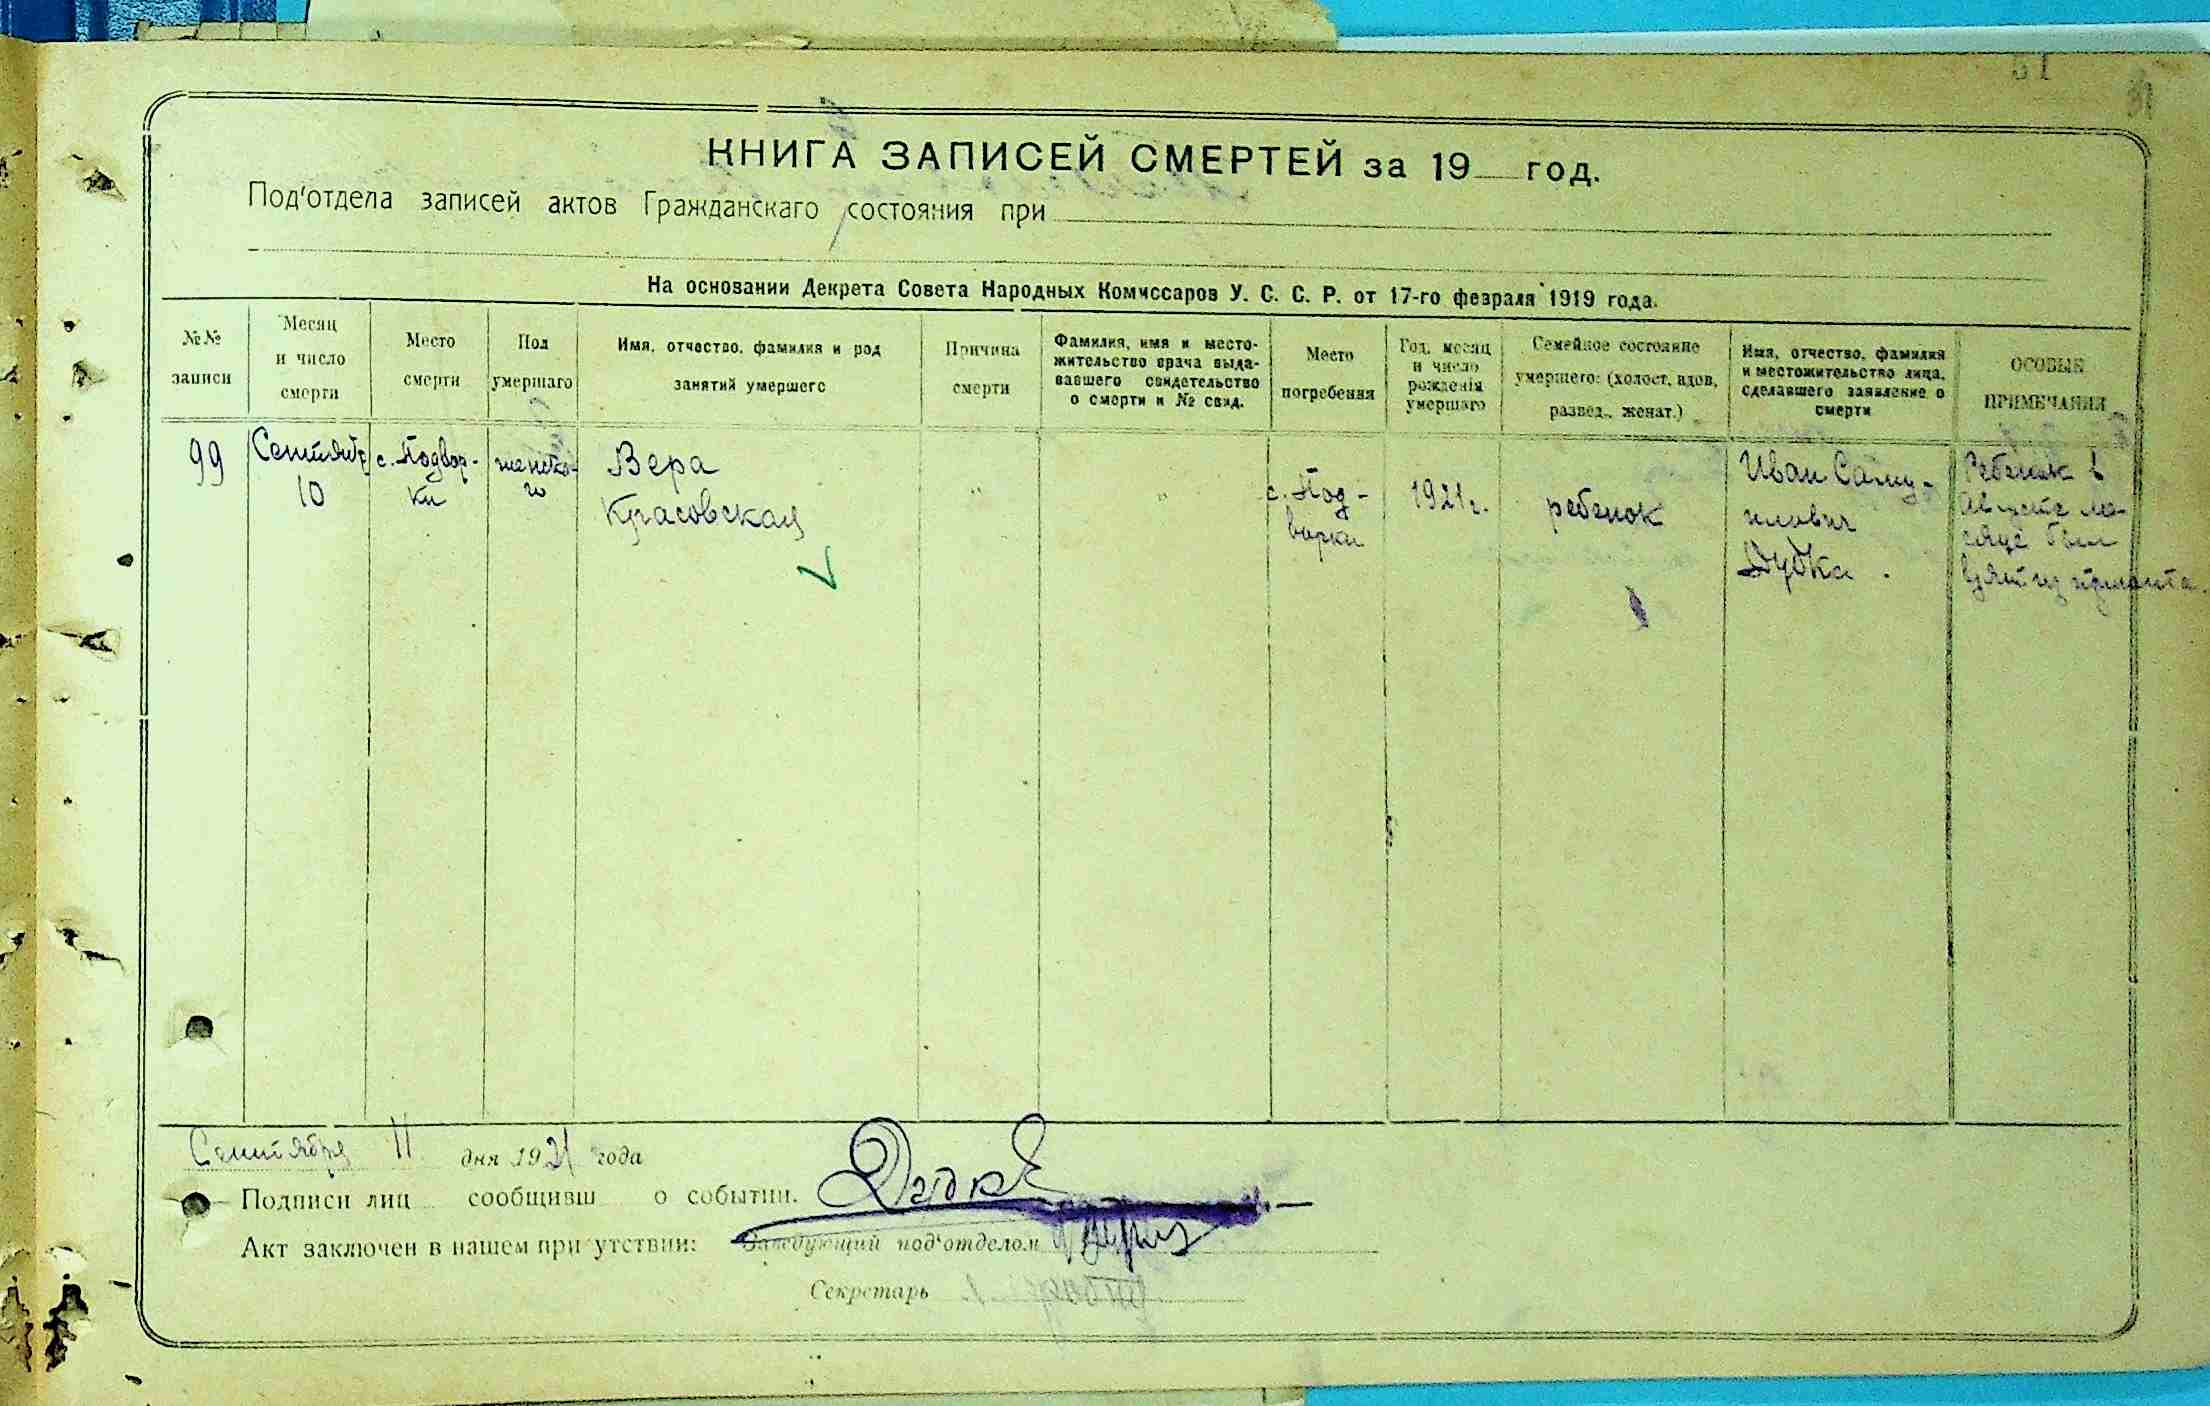 51
КНИГА ЗАПИСЕЙ СМЕРТЕЙ за 19 год.
Под'отдела записей актов Гражданскаго состояния при
На основании Декрета Совета Народных Комиссаров У. С. С. Р. от 17-го февраля 1919 года.
№№ записи
Месяц и число смерти
Место смерти
Пол умершаго
Имя, отчество, фамилия и род занятий умершего
Причина смерти
Фамилия, имя и место-
жительство врача выда-
вавшего свидетельство
о смерти и № свид.
Место погребения
Год, месяц
и число
рождения
умершаго
Семейное состояние
умершего: (холост, вдов,
развед., женат.)
Имя, отчество, фамилия
и местожительство лица,
сделавшего заявление о
смерти
ОСОБЫЕ
ПРИМЕЧАНИЯ
99
Сентябр
10
с. Подвор-
ки
женско-
го
Вера
Красовская
"
"
с. Под-
ворки
1921 г.
ребенок
Иван Саму-
илович
Дудка.
Ребенок в
Августе ме-
сяце был
взят из приюта.
Сентября 11 дня 1921 года
Подписи лиц сообщивш о событии. Дудка
Акт заключен в нашем присутствии: Заведующий под'отделом
Секретарь